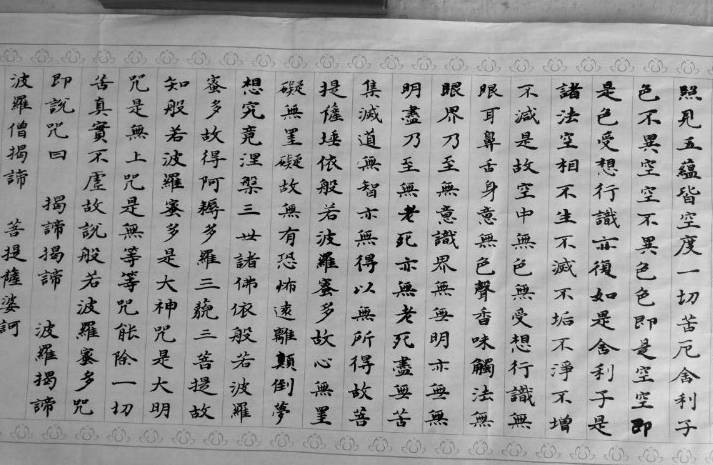 照見五蘊皆空度一切苦厄舍利子
色不異空空不異色色即是空空即
是色受想行識亦復如是舍利子是
諸法空相不生不滅不垢不淨不增
不減是故空中無色無受想行識無
眼耳鼻舌身意無色聲香味觸法無
眼界乃至無意識界無無明亦無無
明盡乃至無老死亦無老死盡無苦
集滅道無智亦無得以無所得故菩
提薩埵依般若波羅蜜多故心無罣
礙無罣礙故無有恐怖遠離顛倒夢
想究竟涅槃三世諸佛依般若波羅
蜜多故得阿耨多羅三藐三菩提故
知般若波羅蜜多是大神咒是大明
咒是無上咒是無等等咒能除一切
苦真實不虛故說般若波羅蜜多咒
即說咒曰 揭諦揭諦 波羅揭諦
波羅僧揭諦 菩提薩婆訶